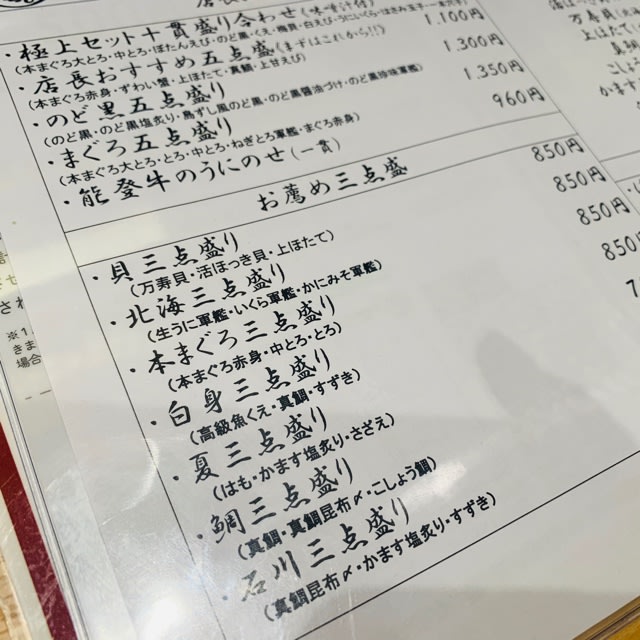 店長
・極上セット十貫盛り合わせ(味噌汁付)
・店長おすすめ五点盛(まずはこれから!!) 1,100円
(本まぐろ赤身・ずわい蟹・上ほたて・真鯛・上甘えび)
・のど黒五点盛り 1,300円
(のど黒・のど黒塩炙り・鳥ずし風のど黒・のど黒醤油づけ・のど黒珍味軍艦)
・まぐろ五点盛り 1,350円
(本まぐろ大とろ・とろ・中とろ・ねぎとろ軍艦・まぐろ赤身)
・能登牛のうにのせ(一貫) 960円
お薦め三点盛
・貝三点盛り 850円
(万寿貝・活ほっき貝・上ほたて)
・北海三点盛り 850円
(生うに軍艦・いくら軍艦・かにみそ軍艦)
・本まぐろ三点盛り 850円
(本まぐろ赤身・中とろ・とろ)
・白身三点盛り 850円
(高級魚くえ・真鯛・すずき)
・夏三点盛り 7
(はも・かます塩炙り・さざえ)
・鯛三点盛り
(真鯛・真鯛昆布〆・こしょう鯛)
・石川三点盛り
(真鯛昆布〆・かます塩炙り・すずき)
万寿貝
上ほたて
かます
され
※1
きま
場合